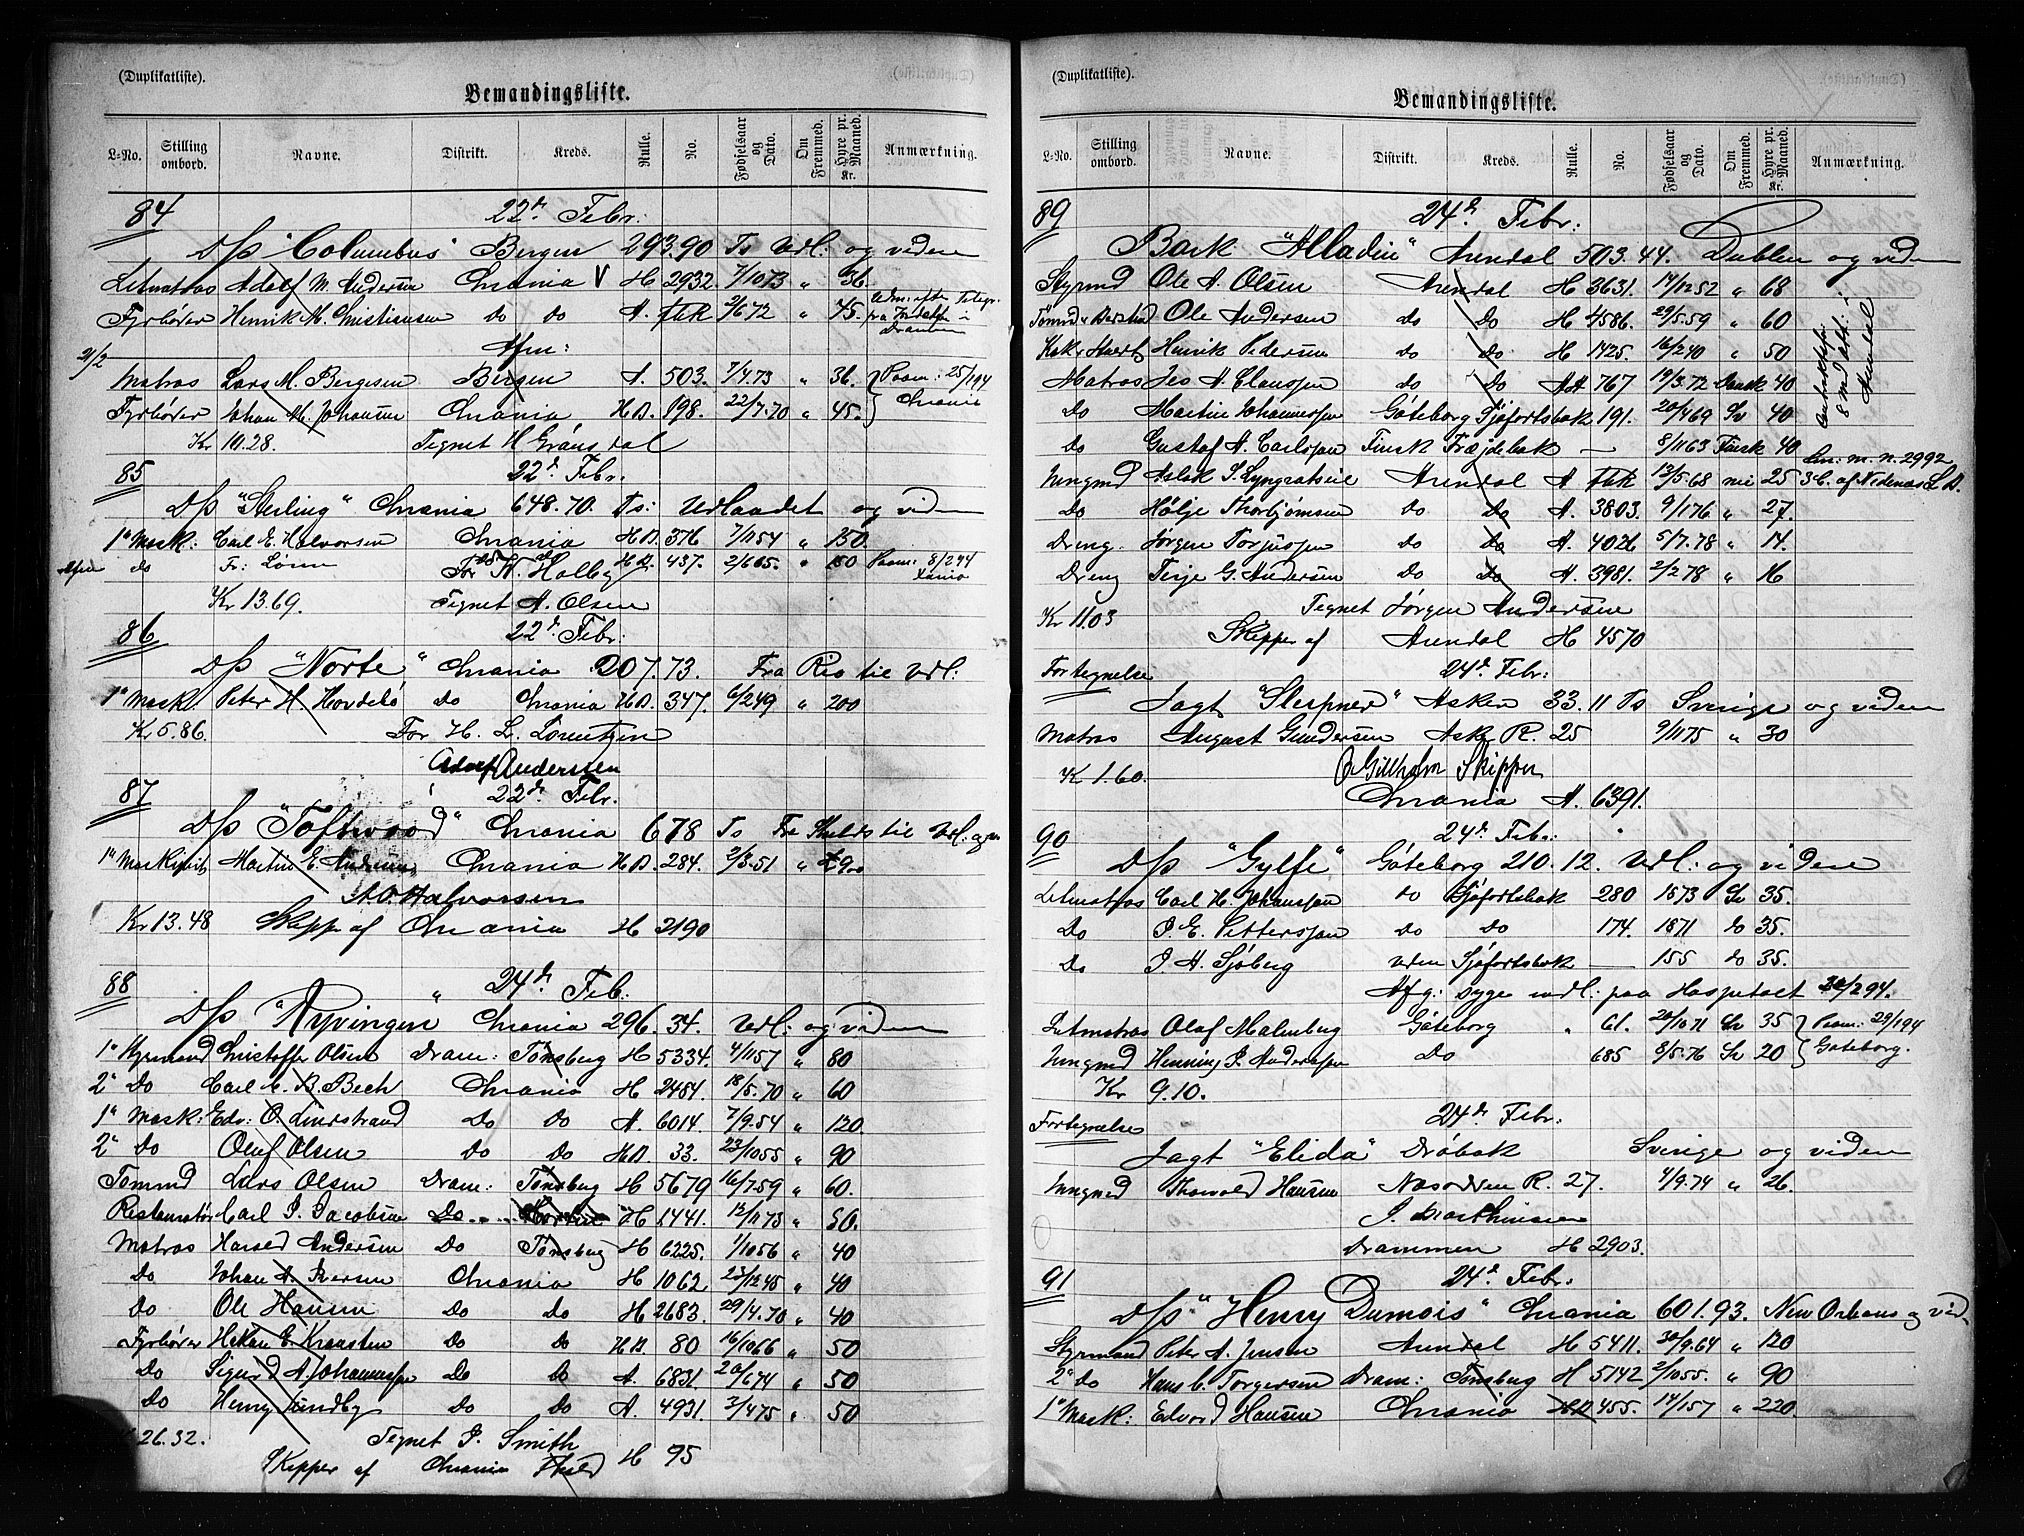 (Duplikatliste).
Bemandingsliste.
L-No. Stilling ombord. Navne. Distrikt. Kreds. Rulle. No. Fødselsaar og Dato. Om Fremmed. Hyre pr. Maaned. Kr. Anmærkning.
84 22d Febr:
D/S "Columbus" Bergen 293.90 Ts Udl: og viden
Letmatros Adolf M. Andersen Chrania V H 2932. 7/1073 " 36.
Fyrbøder Henrik M. Christiansen do do A. 2/672 " 45.
Afm:
21/2
Matros Lars M. Bergesen Bergen A. 503. 7/4.73 " 36. Paam: 25/194
Fyrbøder Johan M. Johansen Chrania H.D. 198. 22/7.70 " 45. Chrania
Kr 10.28. Tegnet H Grønsdal
85 22d Febr.
D/S "Sterling" Chrania 648.70. Ts: Udlandet og viden
1ste Mask: Carl E. Halvorsen Chrania H.D. 376 7/1154 " 150.
do Fr: Lønn do do H.D. 437. 2/665. " 150 Paam: 8/294
For N. Holby
Kr 13.69. Tegnet A. Olsen
86 22d Febr:
D/S "Norte" Chrania 207.73. Fra Rio til Udl:
1ste Mask Peter H. Hovdebo do Chrania H.D. 347. 6/249 " 200
Kr 5.86. For H. L. Lorentzen
Adolf Andersen
87 22d Febr.
D/S "Toftwood" Chrania 678 Ts Fra Shields til Udl: og
1ste Maskinist Martin E. Andersen Chrania H.D. 284. 2/3.51 "
A. O. Halvorsen
Kr 13.48 Skipp af Chrania H 2190
88 24d Feb:
D/S "Ryvingen" Chrania 296.34. Udl: og viden
1ste Styrmand Christoffer Olsen Dram: Tønsberg H 5334. 4/1157 " 80
2 Do Carl C. B. Bech Chrania H 2484. 18/5.70 " 60
1ste Mask: Edv: O. Lindstrand Do Do A. 6014. 7/9.54 " 120.
2 Do Oluf Olsen Do Do H.D. 33. 23/1055 " 90
Tømmd Lars Olsen Dram: Tønsberg H 5679 16/7.59 " 60.
Restauratør Carl J. Jacobsen Do H 1441. 12/1173 " 50.
Matros Harald Andersen Do Tønsberg H 6225. 1/1056 " 40
Do Johan A. Iversen Chrania H 1062 23/1245 " 40
Do Ole Hansen Do Do H 2683. 29/4.70 " 40
Fyrbøder Hakon E. Knudsten Do Do H.D. 80 16/1066 " 50
Do Sigurd A. Johannessen Do Do A. 6831. 20/674 " 50
Do Henry Sundby Do Do A. 4931. 3/475 " 50
26.32. Tegnet J. Smith
Skipper af Chrania H 95
(Duplikatliste).
Bemandingsliste.
L-No. Stilling ombord. Navne. Distrikt. Kreds. Rulle. No. Fødselsaar og Dato. Om Fremmed. Hyre pr. Maaned. Kr. Anmærkning.
89 24d Febr:
Bark "Alladin" Arendal 503.44. Dublin og viden
Styrmd Ole A. Olsen Arendal H 3631. 17/1252 " 68
Ole Andersen do Do H 4586. 29/5.59 " 60
Kok Henrik Pedersen do Do H 1425. 16/240 " 50
Matros Jes A. Claussen do Do AA 767 19/3.72 Dansk 40
Do Martin Johannessen Göteborg Sjöfartsbok 191. 20/469 Sv 40
Do Gustaf A. Carlsson Finsk Fræjdebok — 8/1163 Finsk 40
Ungmd Aslak S. Lyngratseie Arendal A 13/5.68 nei 25 m. n. 2992
Do Høljе Thorbjørnsen do Do A. 3803. 9/176 " 27.
Dreng. Jørgen Torjussen do Do A. 4026 5/7.78 " 14.
Dreng Terje G. Andersen Do Do A. 3981. 2/278 " 16
Kr 11.03 Tegnet Jørgen Andersen
Skipper af Arendal H 4570
Fortegnelse 24d Febr:
Jagt "Sleipner" Asker 33.11 Ts Sverige og viden
Matros August Gundersen Asker R. 25 9/1175 " 30
Kr 1.60. Gullholm Skipper
Chrania A. 6391.
90 24d Febr:
D/S "Gylfe" Göteborg 210.12. Udl: og videre
Letmatros Carl H. Johansson do Sjöfartsbok 280 1873 Sv 35.
Do P. E. Pettersson do do 174. 1871 do 35.
Do J. A. Sjöberg uden Sjöfartsbok — 155 do 35.
Afg: syge indl: paa Hospitalet 30/294.
Letmatros Olaf Malmberg Göteborg " 61. 20/1071 Sv 35 Paam: 29/194
Ungmd Henning J. Andersson Do 685 8/5.76 Sv 20 Göteborg.
Kr 9.10.
Fortegnelse 24d Febr:
Jagt "Elida" Drøbak Sverige og viden
Ungmd Thorvald Hansen Næsodden R. 27. 4/9.74 " 26.
J. Mathinsen
Drammen H 2903.
91 24d Febr:
D/S "Henry Dumois" Chrania 601.93. New Orleans og vid.
Styrmand Peter A. Jensen Arendal H 5411. 30/9.64 " 120
2 do Hans C. Torgersen Dram: Tønsberg H 5142 2/1055. " 90
1ste Mask: Edvard Hansen Chrania 455. 14/157 " 220.